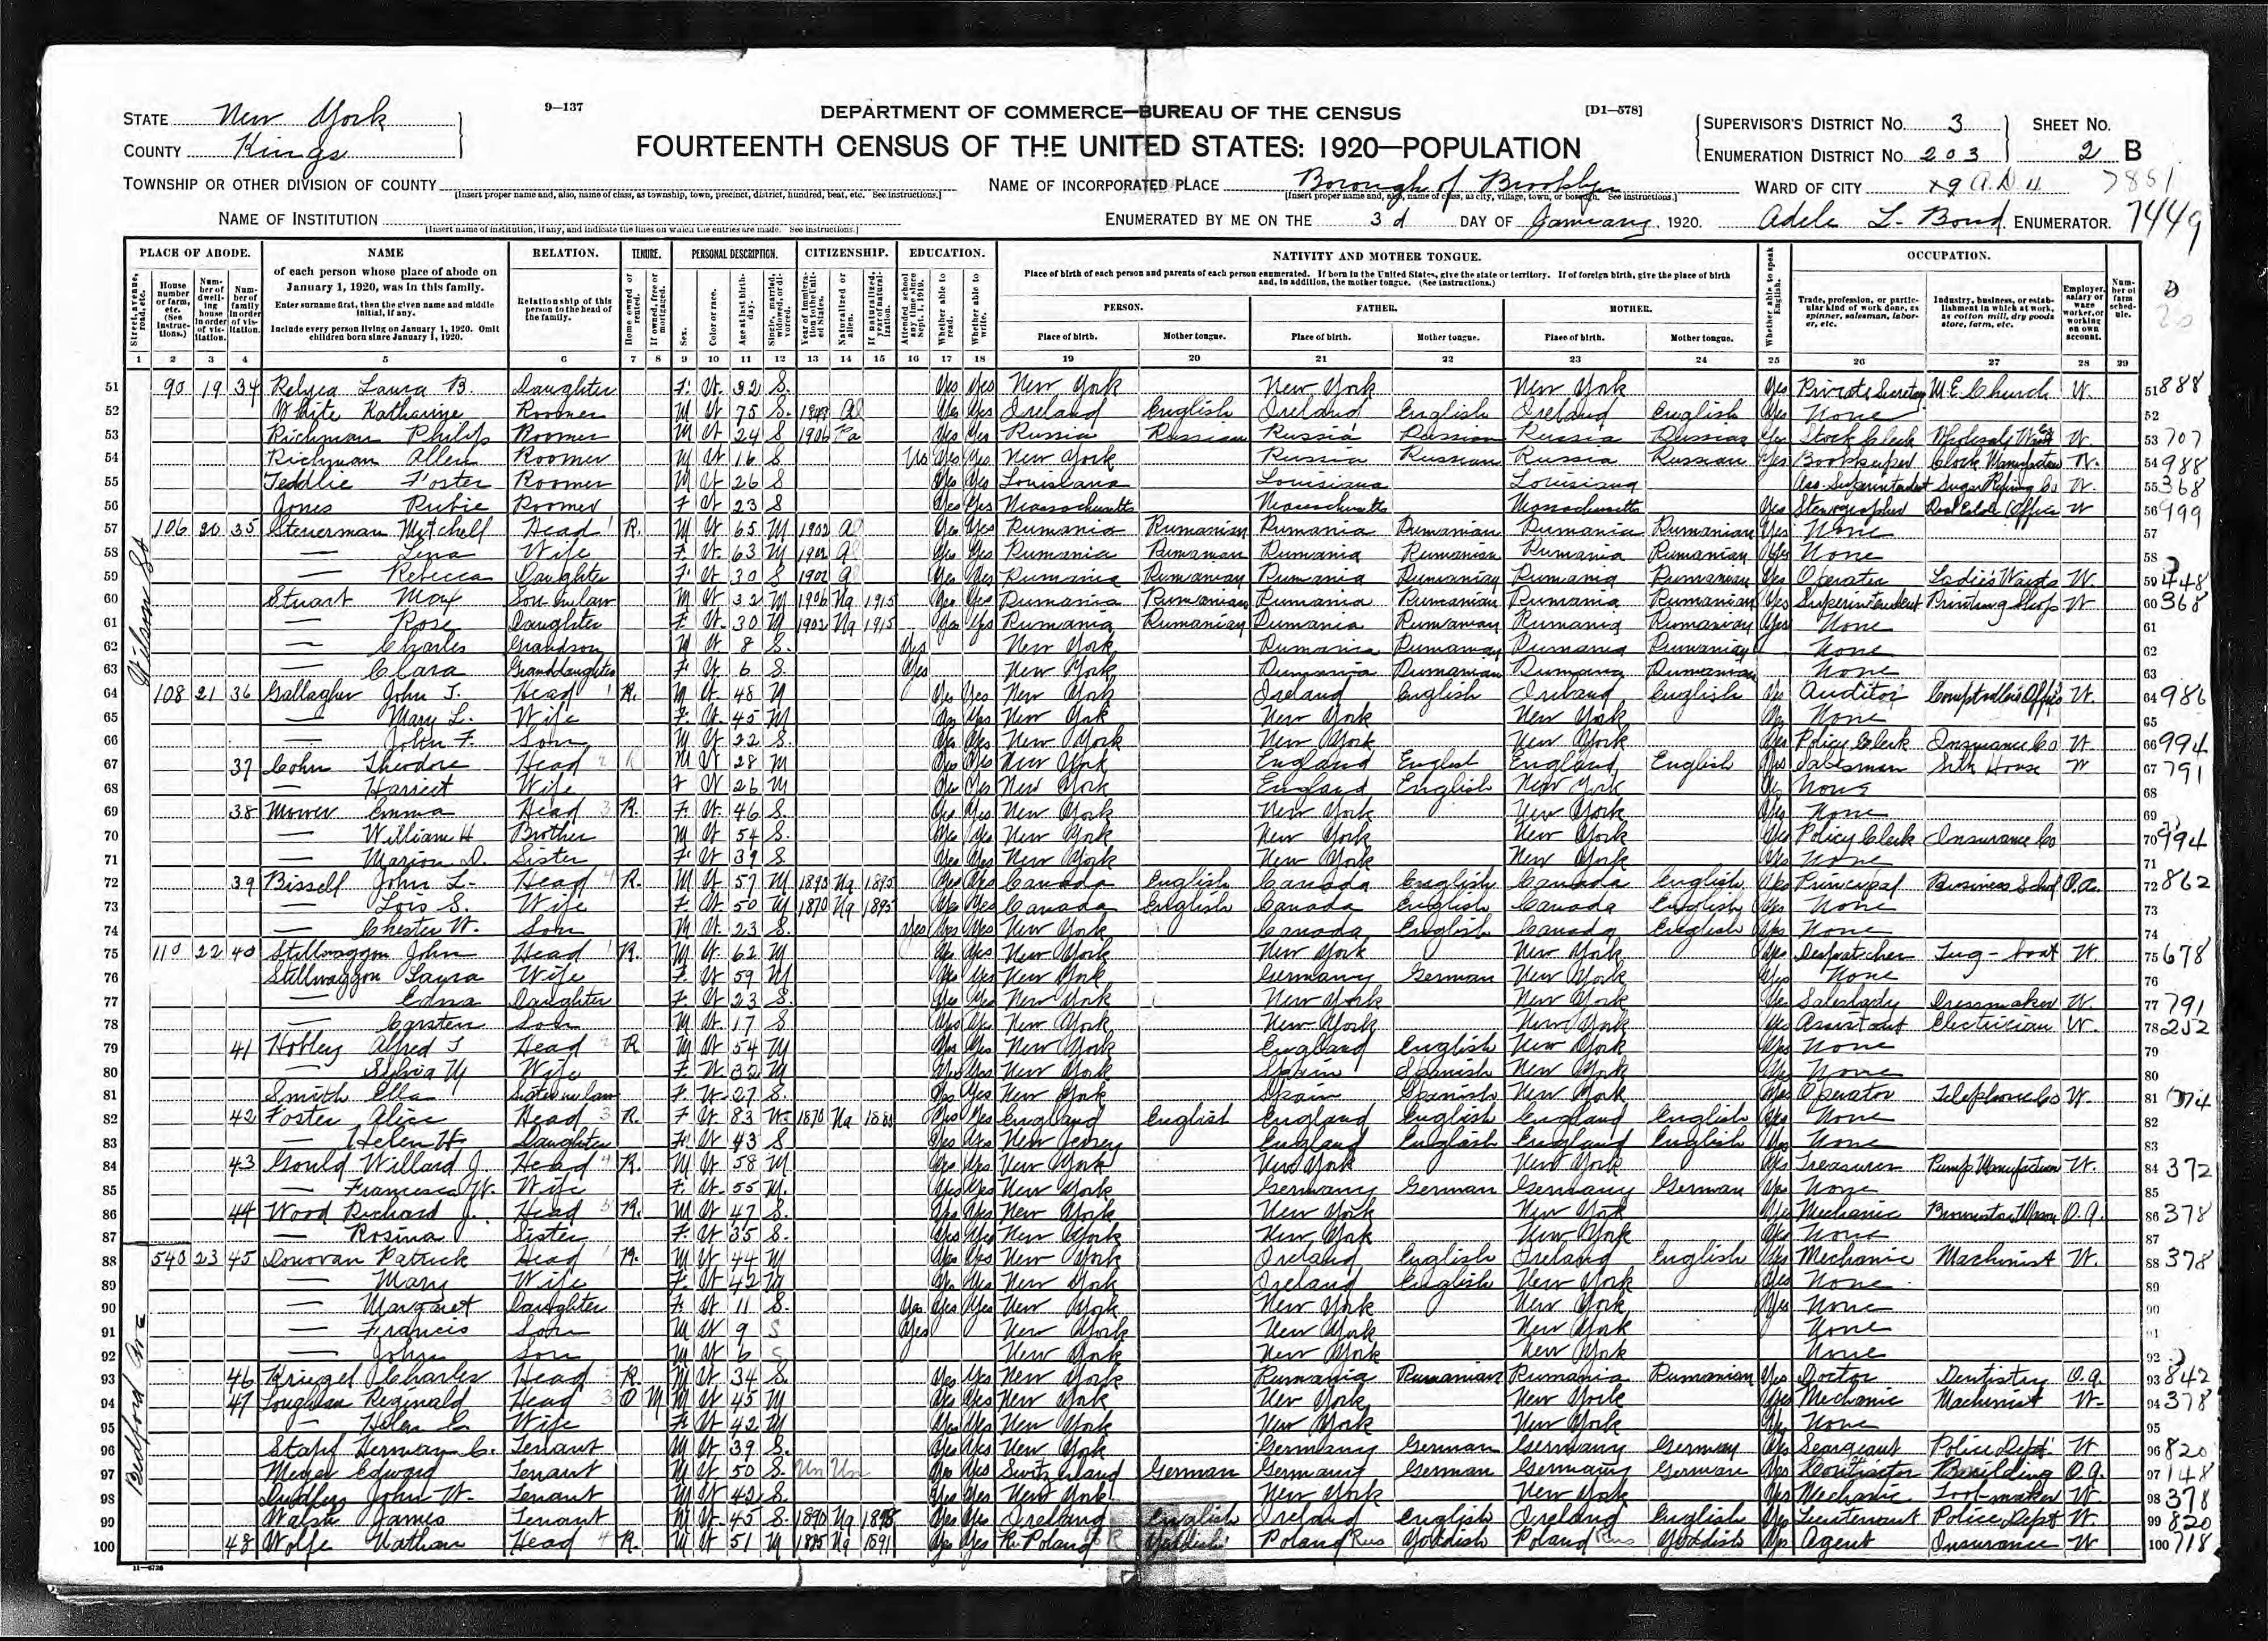 9—137
DEPARTMENT OF COMMERCE—BUREAU OF THE CENSUS
[D1—578]
STATE New York
COUNTY Kings
FOURTEENTH CENSUS OF THE UNITED STATES: 1920—POPULATION
SUPERVISOR'S DISTRICT No. 3
ENUMERATION DISTRICT No. 203
SHEET No. 2 B
TOWNSHIP OR OTHER DIVISION OF COUNTY
[Insert proper name and, also, name of class, as township, town, precinct, district, hundred, beat, etc. See instructions.]
NAME OF INCORPORATED PLACE Borough of Brooklyn
[Insert proper name and, also, name of class, as city, village, town, or borough. See instructions.]
WARD OF CITY 7851
NAME OF INSTITUTION
[Insert name of institution, if any, and indicate the lines on which the entries are made. See instructions.]
ENUMERATED BY ME ON THE 3d DAY OF January, 1920. Adele L. Bond ENUMERATOR. 7449
PLACE OF ABODE. NAME RELATION. TENURE. PERSONAL DESCRIPTION. CITIZENSHIP. EDUCATION. NATIVITY AND MOTHER TONGUE. OCCUPATION.
of each person whose place of abode on January 1, 1920, was in this family.
Enter surname first, then the given name and middle initial, if any.
Include every person living on January 1, 1920. Omit children born since January 1, 1920.
Relationship of this person to the head of the family.
Place of birth of each person and parents of each person enumerated. If born in the United States, give the state or territory. If of foreign birth, give the place of birth and, in addition, the mother tongue. (See instructions.)
PERSON. FATHER. MOTHER.
Place of birth. Mother tongue. Place of birth. Mother tongue. Place of birth. Mother tongue.
1 2 3 4 5 6 7 8 9 10 11 12 13 14 15 16 17 18 19 20 21 22 23 24 25 26 27 28 29
Wilson St
51 90 19 34 Relyea Laura B. Daughter F. W. 32 S. Yes Yes New York New York New York Yes Private Secretary M.E. Church W. 51 888
52 White Katharine Roomer W 75 S. Al Yes Yes Ireland English Ireland English Ireland English Yes None 52
53 Richman Philip Roomer M W 24 S 1906 Pa Yes Yes Russia Russian Russia Russian Russia Russian Yes Stock Clerk Wholesale W. 53 707
54 Richman Allen Roomer M W 16 S No Yes Yes New York Russia Russian Russia Russian Yes Bookkeeper Clock Manufacture W. 54 988
55 Teddlie Foster Roomer M W 26 S Yes Yes Louisiana Louisiana Louisiana Ass. Superintendent Sugar Refining Co W. 55 368
56 Jones Rubie Roomer F W 23 S Yes Yes Massachusetts Massachusetts Massachusetts Yes Stenographer Real Estate Office W 56 999
57 106 20 35 Steuerman Mitchell Head R. M W 65 M 1902 Al Yes Yes Rumania Rumanian Rumania Rumanian Rumania Rumanian Yes None 57
58 — Lena Wife F. W. 63 M 1902 Al Yes Yes Rumania Rumanian Rumania Rumanian Rumania Rumanian Yes None 58
59 — Rebecca Daughter F W 30 S 1902 Al Yes Yes Rumania Rumanian Rumania Rumanian Rumania Rumanian Yes Operator Ladies Waists W. 59 448
60 Stuart Max Son in law M W 32 M 1906 Na 1915 Yes Yes Rumania Rumanian Rumania Rumanian Rumania Rumanian Yes Superintendent Printing Shop W 60 368
61 — Rose Daughter F W. 30 M 1902 Na 1915 Yes Yes Rumania Rumanian Rumania Rumanian Rumania Rumanian Yes None 61
62 — Charles Grandson M W 8 S. Yes New York Rumania Rumanian Rumania Rumanian None 62
63 — Clara Granddaughter F W 6 S. Yes New York Rumania Rumanian Rumania Rumanian None 63
64 108 21 36 Gallagher John J. Head 1 R. M W. 48 M Yes Yes New York Ireland English Ireland English Yes Auditor Comptrollers Office W. 64 986
65 — Mary L. Wife F. W. 45 M Yes Yes New York New York New York Yes None 65
66 — John F. Son M W 22 S. Yes Yes New York New York New York Yes Policy Clerk Insurance Co W. 66 994
67 37 Cohn Theodore Head 2 R M W 28 M Yes Yes New York England English England English Yes Salesman Silk House W 67 791
68 — Harriet Wife F W 26 M Yes Yes New York England English New York Yes None 68
69 38 Mower Emma Head 3 R. F. W. 46 S. Yes Yes New York New York New York Yes None 69
70 — William H Brother M W 54 S. Yes Yes New York New York New York Yes Policy Clerk Insurance Co 70 994
71 — Marion D. Sister F W 39 S Yes Yes New York New York New York Yes None 71
72 39 Bissell John L. Head 4 R. M W 57 M Na 1895 Yes Yes Canada English Canada English Canada English Yes Principal Business School O.A. 72 862
73 — Lois S. Wife F. W 50 M Na 1895 Yes Yes Canada English Canada English Canada English Yes None 73
74 — Chester W. Son M W. 23 S. Yes Yes Yes New York Canada English Canada English Yes None 74
75 110 22 40 Stillwaggon John Head 1 R. M W. 62 M Yes Yes New York New York New York Yes Despatcher Tug-boat W. 75 678
76 Stillwaggon Laura Wife F. W 59 M Yes Yes New York Germany German New York Yes None 76
77 — Edna Daughter F. W 23 S. Yes Yes New York New York New York Yes Saleslady Dressmaker W. 77 791
78 — Carsten Son M W. 17 S Yes Yes New York New York New York Yes Assistant Electrician W. 78 252
79 41 Alfred J Head 2 R M W 54 M Yes Yes New York England English New York Yes None 79
80 — Silvia M Wife F. W. 32 M Yes Yes New York Spain Spanish New York Yes None 80
81 Smith Ella Sister in law F. W. 27 S. Yes Yes New York Spain Spanish New York Yes Operator Telephone Co W. 81
82 42 Foster Alice Head 3 R. F W. 83 Wd 1870 Na Yes Yes England English England English England English Yes None 82
83 — Helen H Daughter F W 43 S Yes Yes New Jersey England English England English Yes None 83
84 43 Gould Willard J. Head 4 R. M W. 58 M Yes Yes New York New York New York Yes Treasurer Pump Manufacture W. 84 372
85 — Francesca W. Wife F. W. 55 M. Yes Yes New York Germany German Germany German Yes None 85
86 44 Wood Richard J. Head 5 R. M W 47 S. Yes Yes New York New York New York Yes Mechanic O.A. 86 378
87 — Rosina Sister F. W 35 S. Yes Yes New York New York New York Yes None 87
Bedford Ave
88 540 23 45 Donovan Patrick Head 1 R. M W 44 M Yes Yes New York Ireland English Ireland English Yes Mechanic Machinist W. 88 378
89 — Mary Wife F. W 42 M Yes Yes New York Ireland English New York Yes None 89
90 — Margaret Daughter F W 11 S. Yes Yes Yes New York New York New York Yes None 90
91 — Francis Son M W 9 S Yes New York New York New York None 91
92 — John Son M W 6 S New York New York New York None 92
93 46 Kriegel Charles Head R M W 34 S. Yes Yes New York Rumania Rumanian Rumania Rumanian Yes Doctor Dentistry O.A. 93 842
94 47 Loughran Reginald Head 3 O M M W 45 M Yes Yes New York New York New York Yes Mechanic Machinist W. 94 378
95 — Helen C Wife F W 42 M Yes Yes New York New York New York Yes None 95
96 Stapf Herman C. Tenant M W 39 S. Yes Yes New York Germany German Germany German Yes Seargeant Police Dept W 96 820
97 Meyer Edward Tenant M W. 50 S. Un Un Yes Yes Switzerland German Germany German Germany German Yes Contractor Building O.A. 97 148
98 Dudley John W. Tenant M W 42 S. Yes Yes New York New York New York Yes Mechanic Tool-maker W. 98 378
99 Walsh James Tenant M W. 45 S. 1890 Na 1898 Yes Yes Ireland English Ireland English Ireland English Yes Lieutenant Police Dept W. 99 820
100 48 Wolfe Nathan Head 4 R. M W 51 M 1885 Na 1891 Yes Yes R. Poland Yiddish Poland Rus Yiddish Poland Rus Yiddish Yes Agent Insurance W 100 718
11—6726